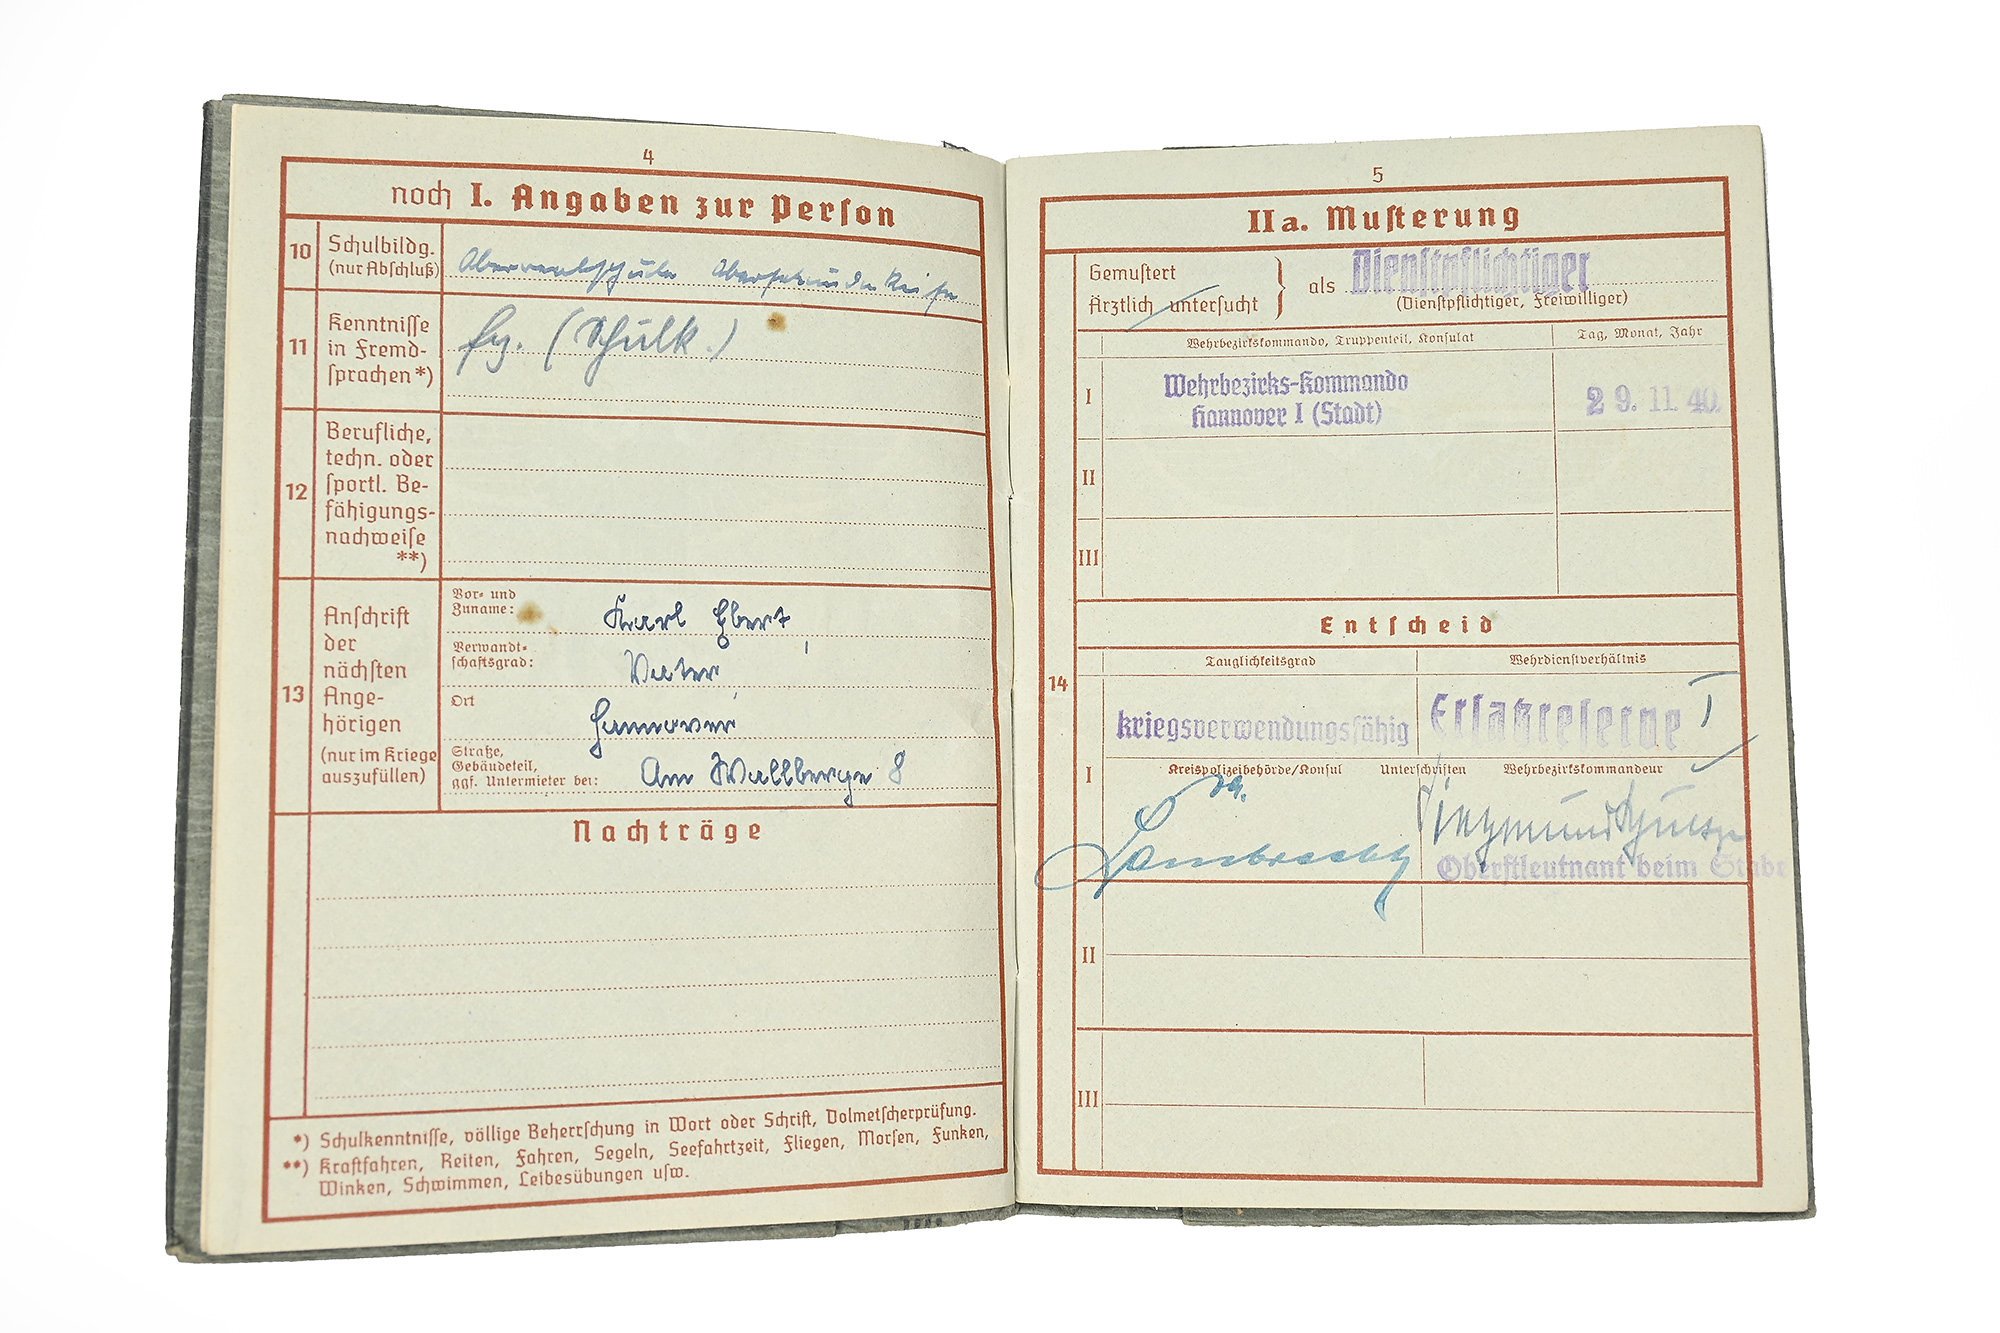 4
noch I. Angaben zur Person
10 Schulbildg.
(nur Abschluß)
Oberrealschule Obersekundareife
11 Kenntnisse
in Fremd-
sprachen *)
(Schulk.)
12 Berufliche,
techn. oder
sportl. Be-
fähigungs-
nachweise
**)
13 Anschrift
der
nächsten
Ange-
hörigen
(nur im Kriege
auszufüllen)
Vor- und
Zuname:
Karl Ebert
Verwandt-
schaftsgrad:
Vater
Ort
Hannover
Straße,
Gebäudeteil,
ggf. Untermieter bei:
Am Wallberge 8
Nachträge
*) Schulkenntnisse, völlige Beherrschung in Wort oder Schrift, Dolmetscherprüfung.
**) Kraftfahren, Reiten, Fahren, Segeln, Seefahrtzeit, Fliegen, Morsen, Funken,
Winken, Schwimmen, Leibesübungen usw.
5
IIa. Musterung
Gemustert
Ärztlich untersucht
als Dienstpflichtiger
(Dienstpflichtiger, Freiwilliger)
Wehrbezirkskommando, Truppenteil, Konsulat
Tag, Monat, Jahr
I
Wehrbezirks-Kommando
Hannover I (Stadt)
29. 11. 40.
II
III
Entscheid
14
Tauglichkeitsgrad
Wehrdienstverhältnis
kriegsverwendungsfähig
Ersatzreserve I
I
Kreispolizeibehörde/Konsul
Unterschriften
Wehrbezirkskommandeur
Oberstleutnant beim Stabe
II
III